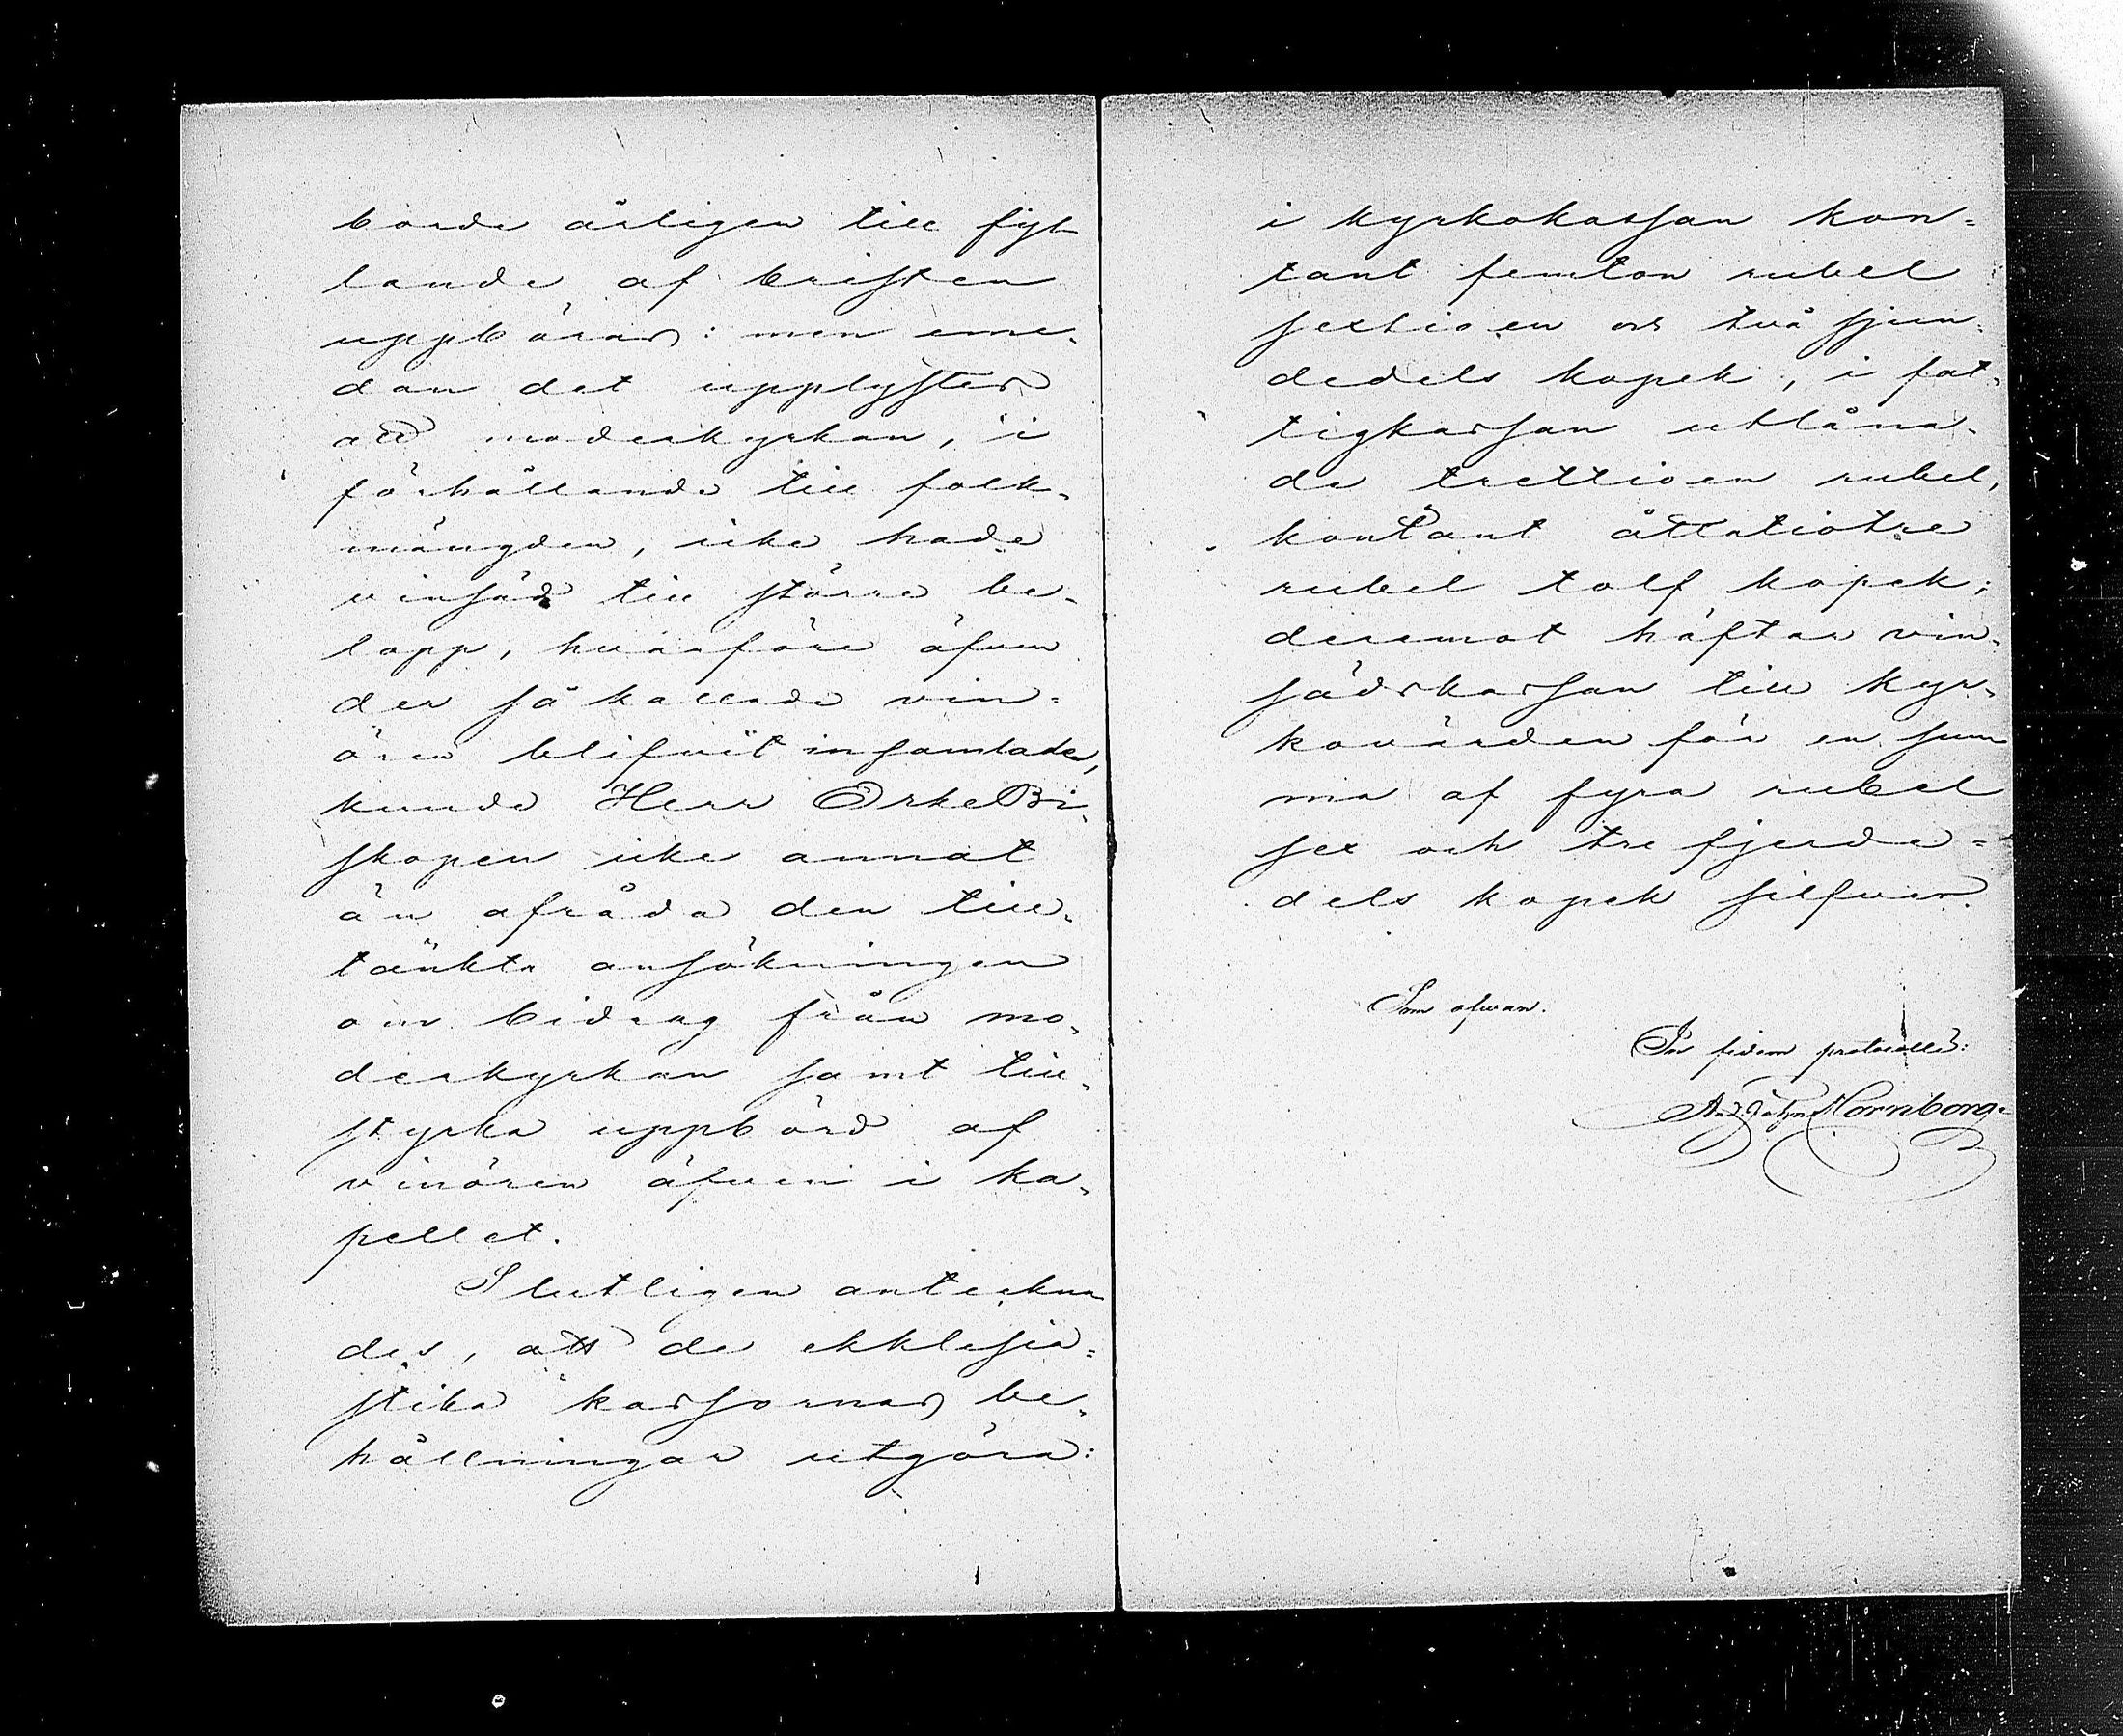 borde årligen till fyl-
lande af bristen
uppbäras: men eme-
dan det upplystes
att moderkyrkan, i
förhållande till folk-
mängden, icke hade
vinsäd till större be-
lopp, hvarföre äfven
der så kallade vin-
ören blifvit insamlade,
kunde Herr ErkeBi-
skopen icke annat
än afråda den till-
tänkta ansökningen
om bidrag från mo-
derkyrkan samt till-
styrka uppbörd af
vinören äfven i ka-
pellet.
Slutligen anteckna
des, att de ekklesia=
stika kassornas be-
hållningar utgöra:
i kyrkokassan kon=
tant femton rubel
sextioen och två sjun-
dedels kopek, i fat-
tigkassan utlåna-
de trettioen rubel,
kontant åttatiotre
rubel tolf kopek;
deremot häftar vin-
sädskassan till kyr-
kovärden för en sum
ma af fyra rubel
sex och tre fjerde=
dels kopek silfver.
Som ofvan.
In fidem protocolli:
And. Joh. Hornborg.